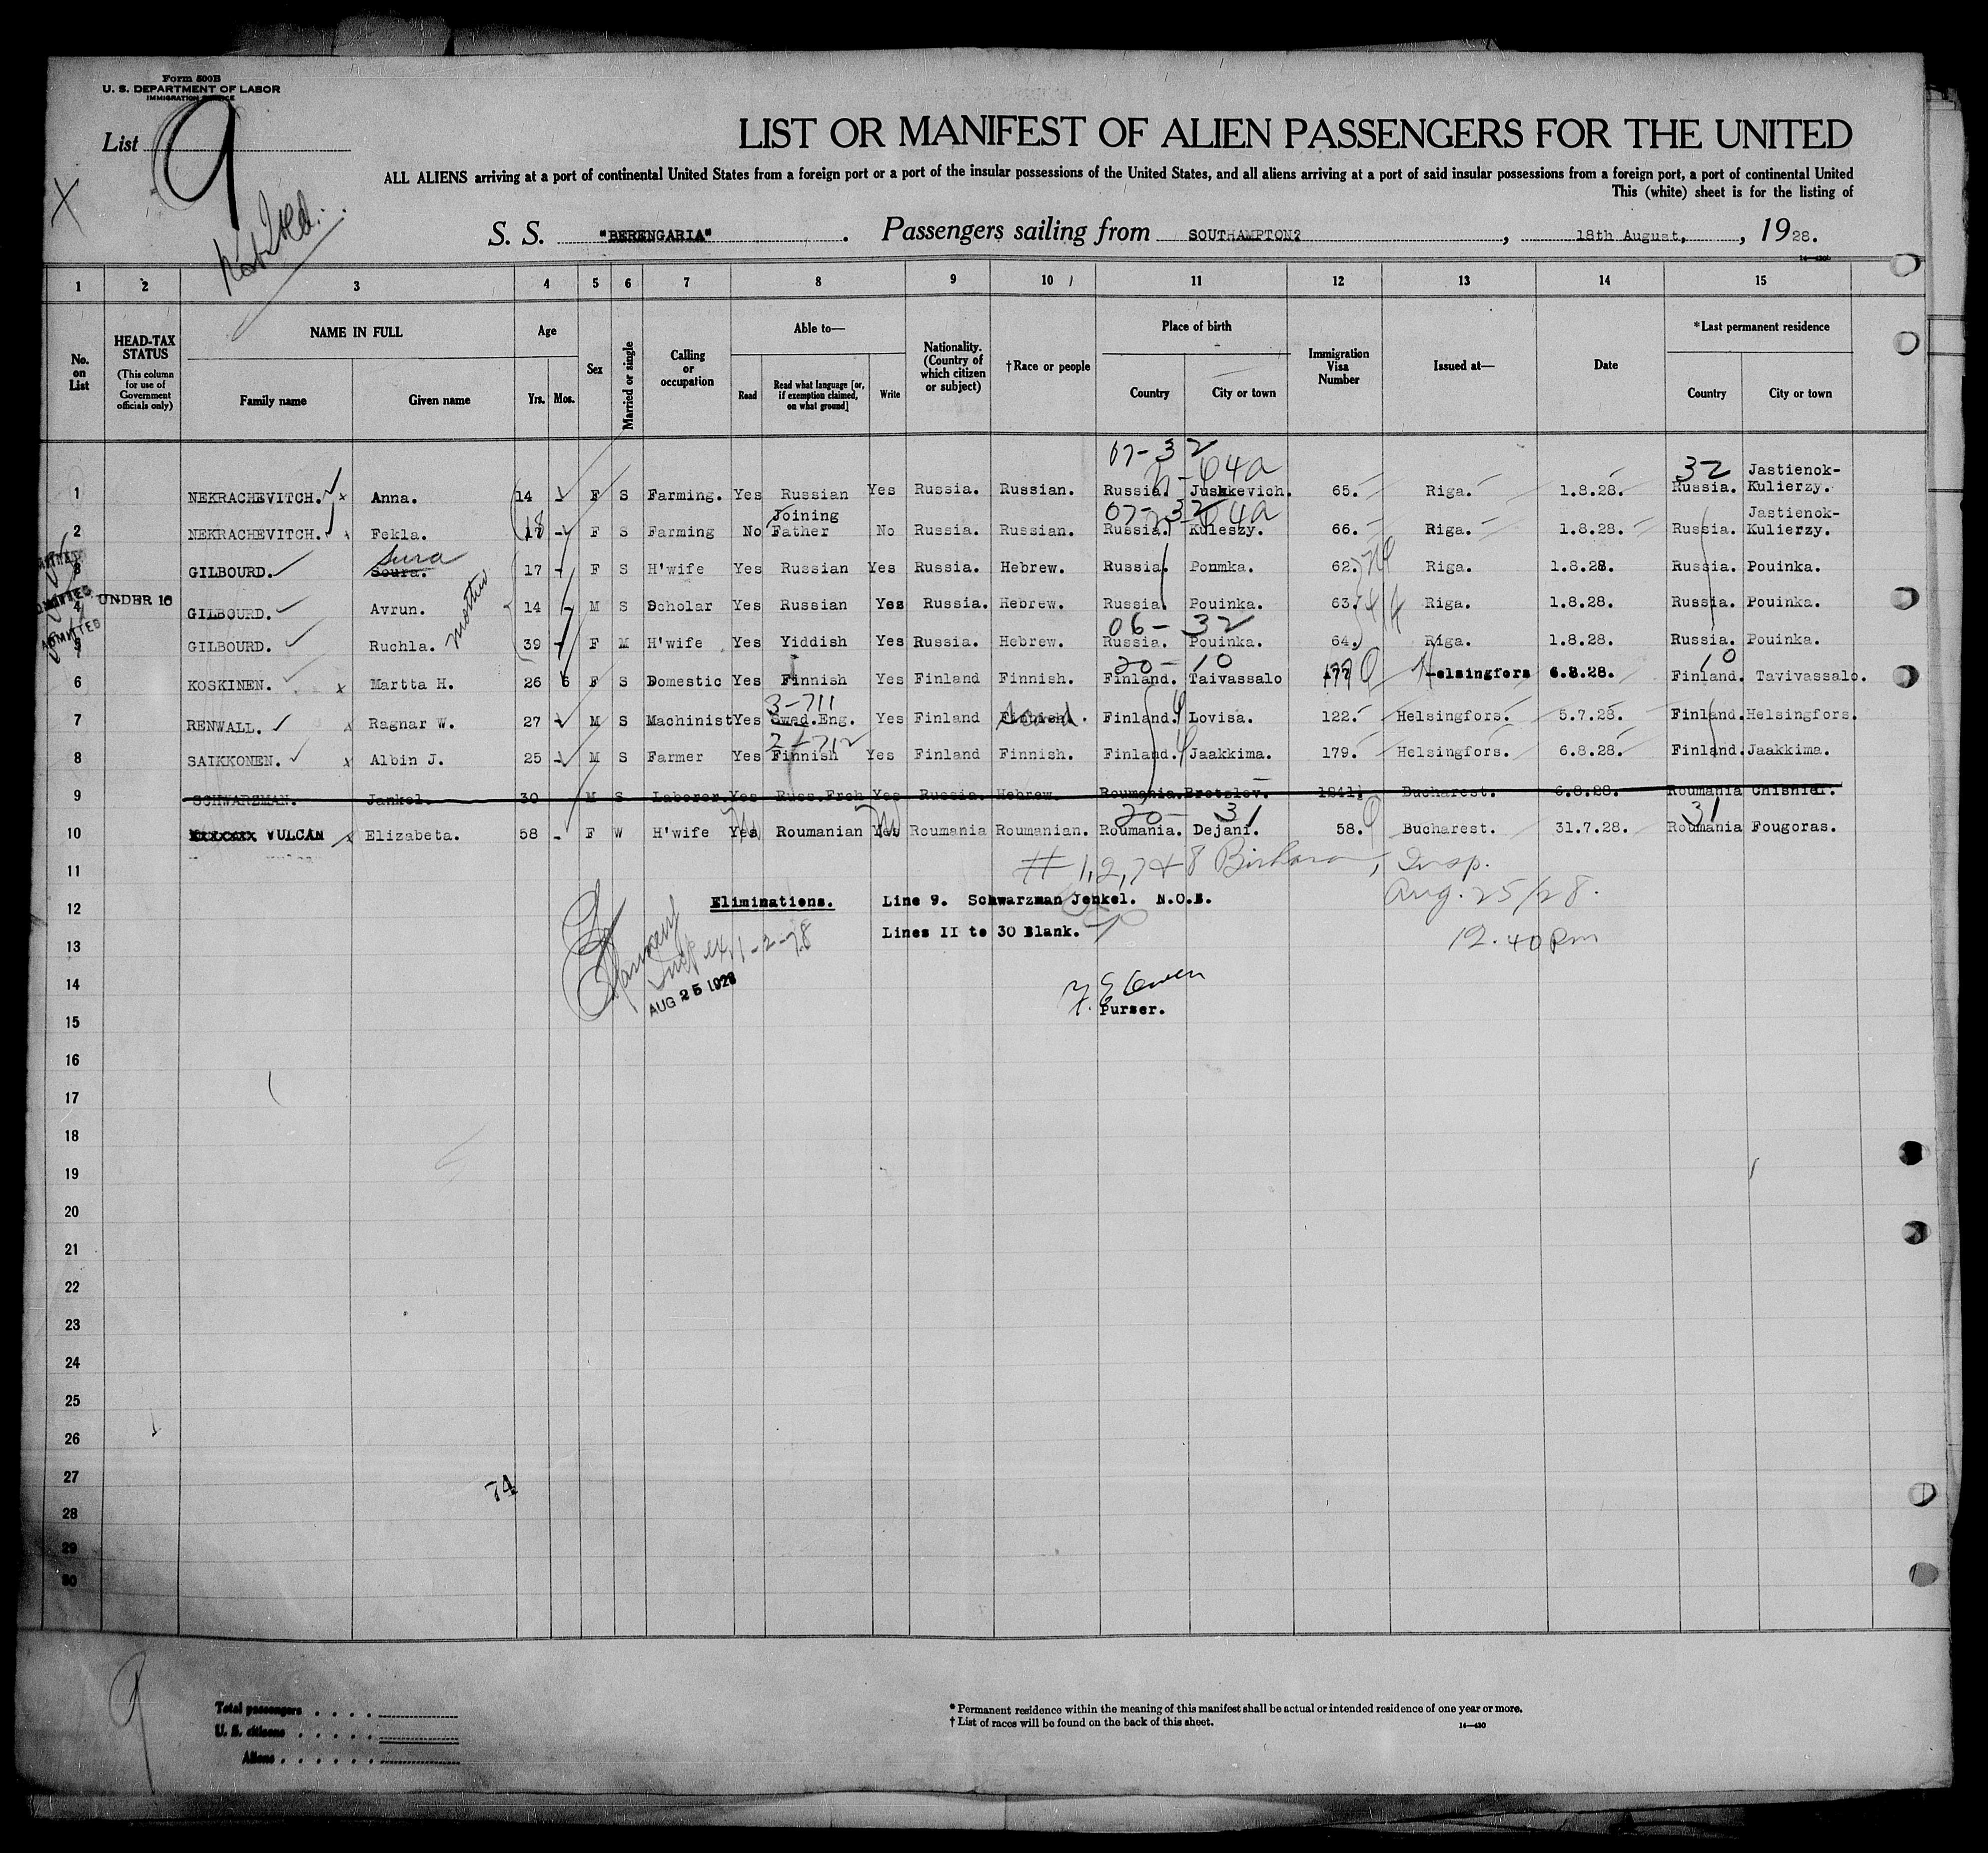 Form 500B
U. S. DEPARTMENT OF LABOR
IMMIGRATION SERVICE
List 9
LIST OR MANIFEST OF ALIEN PASSENGERS FOR THE UNITED
ALL ALIENS arriving at a port of continental United States from a foreign port or a port of the insular possessions of the United States, and all aliens arriving at a port of said insular possessions from a foreign port, a port of continental United
This (white) sheet is for the listing of
X
S. S. "BERENGARIA" . Passengers sailing from SOUTHAMPTON? , 18th August, , 1928.
1 2 3 4 5 6 7 8 9 10 11 12 13 14 15
No. on List
HEAD-TAX STATUS
(This column for use of Government officials only)
NAME IN FULL
Family name Given name
Age
Yrs. Mos.
Sex
Married or single
Calling or occupation
Able to—
Read
Read what language [or, if exemption claimed, on what ground]
Write
Nationality. (Country of which citizen or subject)
†Race or people
Place of birth
Country City or town
Immigration Visa Number
Issued at—
Date
*Last permanent residence
Country City or town
07-32
1 NEKRACHEVITCH. x Anna. 14 F S Farming. Yes Russian Yes Russia. Russian. Russia. Jushkevich. 65. Riga. 1.8.28. 32 Russia. Jastienok-Kulierzy.
07-32
2 NEKRACHEVITCH. x Fekla. 18 F S Farming No Joining Father No Russia. Russian. Russia. Kuleszy. 66. Riga. 1.8.28. Russia. Jastienok-Kulierzy.
3 GILBOURD. Soura. Sura 17 - F S H'wife Yes Russian Yes Russia. Hebrew. Russia. Ponmka. 62. Riga. 1.8.28. Russia. Pouinka.
4 UNDER 16 GILBOURD. Avrun. 14 - M S Scholar Yes Russian Yes Russia. Hebrew. Russia. Pouinka. 63. Riga. 1.8.28. Russia. Pouinka.
ADMITTED
06-32
5 GILBOURD. Ruchla. mother 39 - F M H'wife Yes Yiddish Yes Russia. Hebrew. Russia. Pouinka. 64. Riga. 1.8.28. Russia. Pouinka.
20-10
6 KOSKINEN. x Martta H. 26 6 F S Domestic Yes Finnish Yes Finland Finnish. Finland. Taivassalo 177 Helsingfors 6.8.28. 10 Finland. Tavivassalo.
3-711
7 RENWALL. x Ragnar W. 27 M S Machinist Yes Swed.Eng. Yes Finland Finland. Lovisa. 122. Helsingfors. 5.7.28. Finland. Helsingfors.
2-712
8 SAIKKONEN. x Albin J. 25 M S Farmer Yes Finnish Yes Finland Finnish. Finland. Jaakkima. 179. Helsingfors. 6.8.28. Finland. Jaakkima.
9 SCHWARZMAN. Jankel. 30 M S Laborer. Yes Russ.Frch Yes Russia. Hebrew. Roumania. Bretslev. 1841. Bucharest. 6.8.28. Roumania Chisnier.
20-31
10 VULCAN x Elizabeta. 58 - F W H'wife Yes Roumanian Yes Roumania Roumanian. Roumania. Dejani. 58. Bucharest. 31.7.28. 31 Roumania Fougoras.
11 # 1,2,7+8 Insp.
12 Eliminations. Line 9. Schwarzman Jenkel. N.O.B. Aug. 25/28.
13 Lines II to 30 Blank. 12.40 Pm
14 AUG 25 1928
15 Purser.
16
17
18
19
20
21
22
23
24
25
26
27 74
28
29
30
9
Total passengers
U. S. citizens
Aliens
* Permanent residence within the meaning of this manifest shall be actual or intended residence of one year or more.
† List of races will be found on the back of this sheet.
14—430